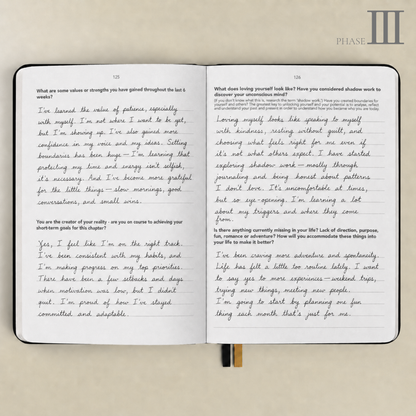 PHASE III
125
What are some values or strengths you have gained throughout the last 6
weeks?
I've learned the value of patience, especially
with myself. I'm not where I want to be yet,
but I'm showing up. I've also gained more
confidence in my voice and my ideas. Setting
boundaries has been huge—I'm learning that
protecting my time and energy isn't selfish,
it's necessary. And I've become more grateful
for the little things—slow mornings, good
conversations, and small wins.
You are the creator of your reality - are you on course to achieving your
short-term goals for this chapter?
Yes, I feel like I'm on the right track.
I've been consistent with my habits, and
I'm making progress on my top priorities.
There have been a few setbacks and days
when motivation was low, but I didn't
quit. I'm proud of how I've stayed
committed and adaptable.
126
What does loving yourself look like? Have you considered shadow work to
discover your unconscious mind?
(If you don't know what this is, research the term 'shadow work'.) Have you created boundaries for
yourself and others? The greatest key to unlocking yourself and your potential is to analyse, reflect
and understand your past and present in order to understand how you became who you are today.
Loving myself looks like speaking to myself
with kindness, resting without guilt, and
choosing what feels right for me even if
it's not what others expect. I have started
exploring shadow work—mostly through
journaling and being honest about patterns
I don't love. It's uncomfortable at times,
but so eye-opening. I'm learning a lot
about my triggers and where they come
from.
Is there anything currently missing in your life? Lack of direction, purpose,
fun, romance or adventure? How will you accommodate these things into
your life to make it better?
I've been craving more adventure and spontaneity.
Life has felt a little too routine lately. I want
to say yes to more experiences—weekend trips,
trying new things, meeting new people.
I'm going to start by planning one fun
thing each month that's just for me.